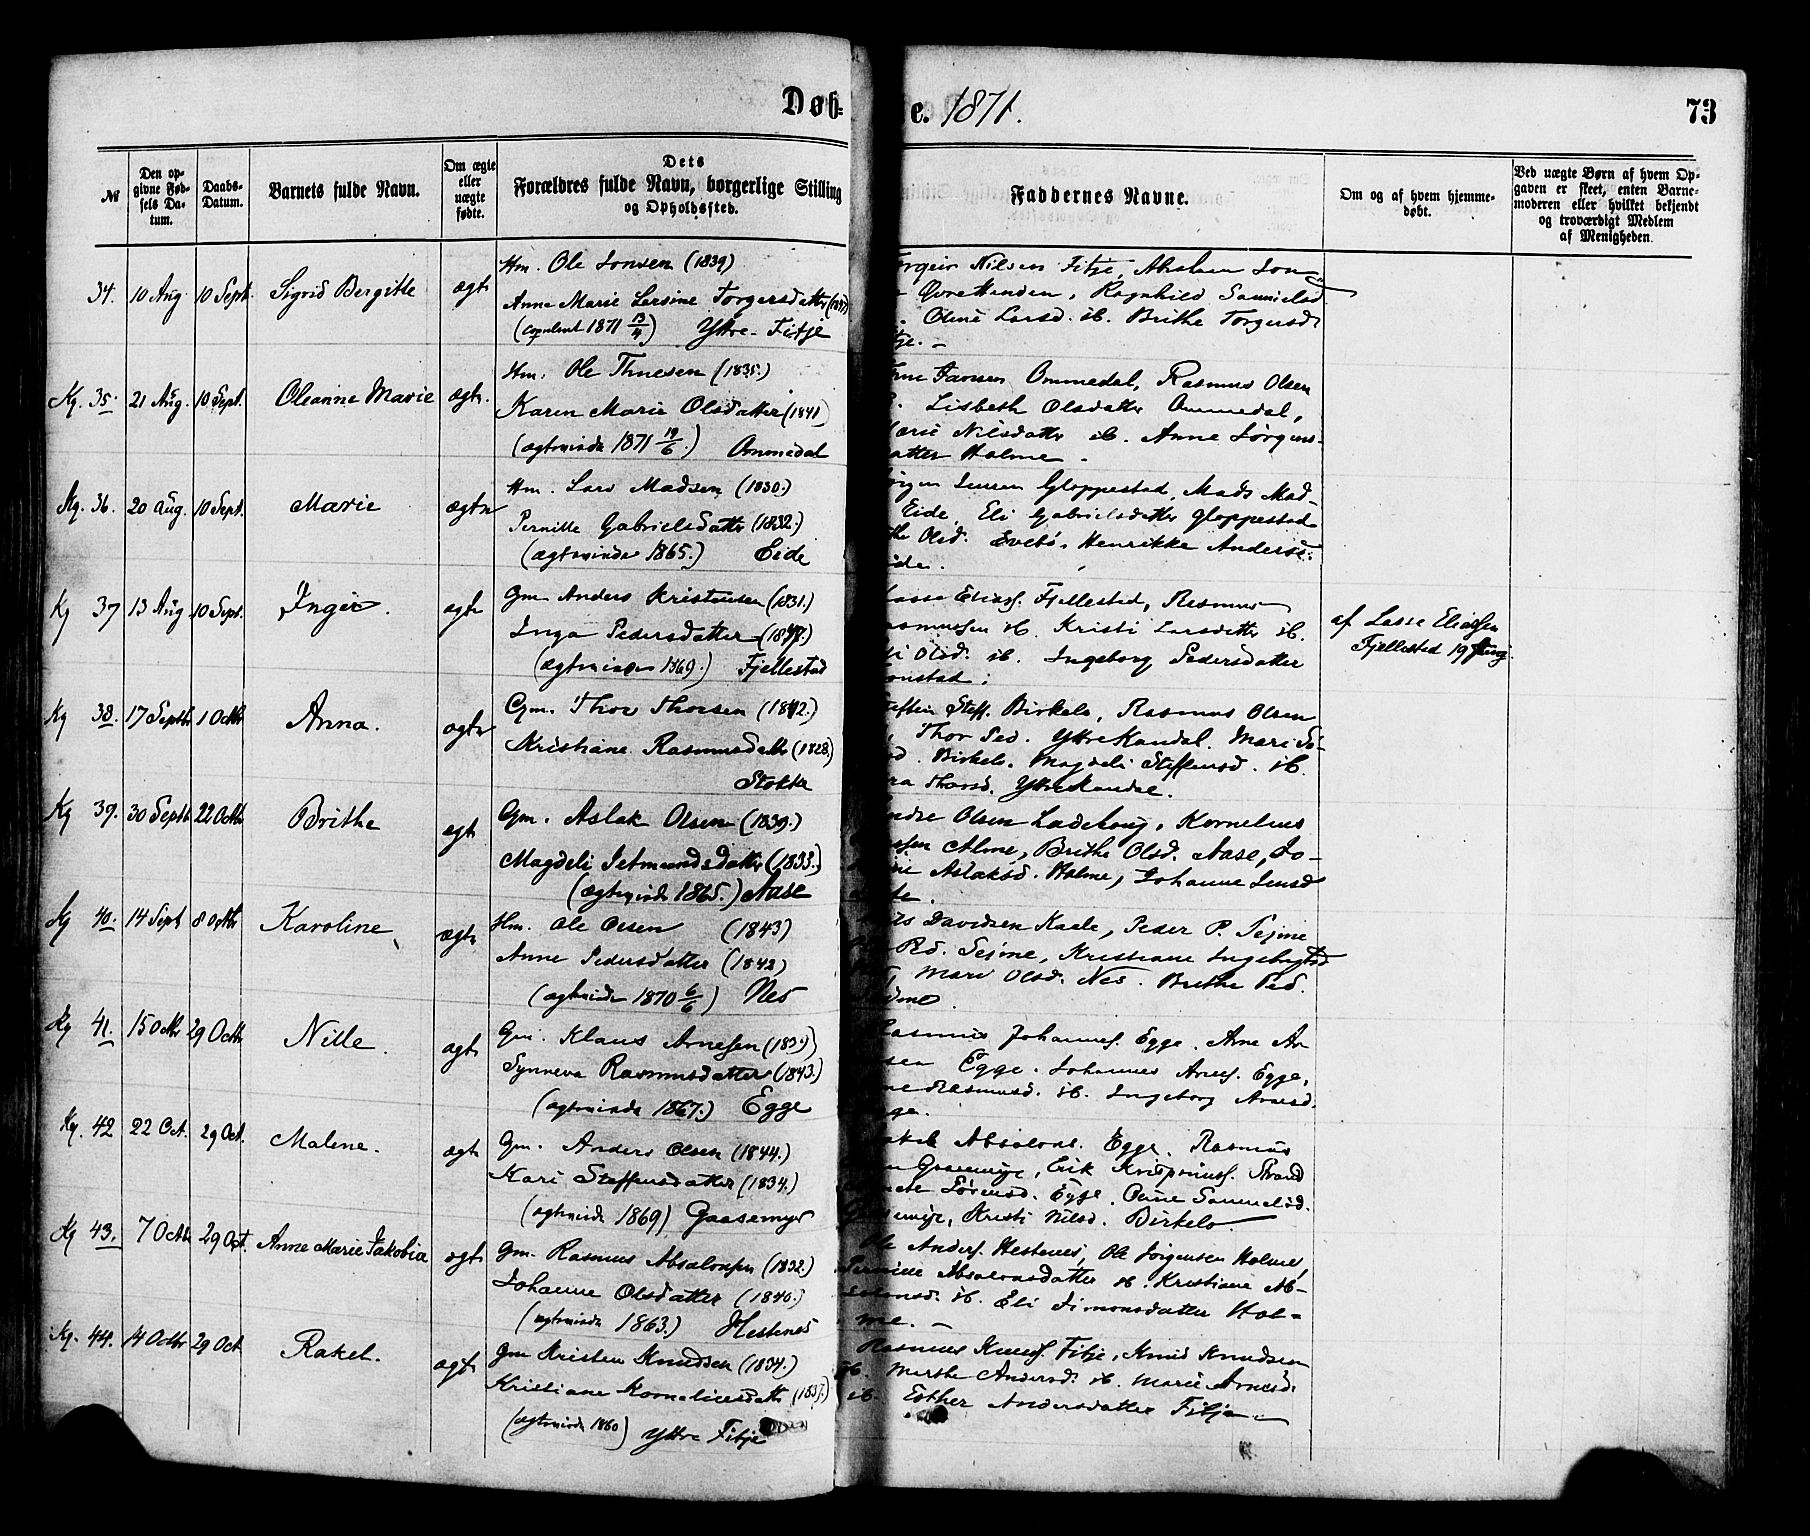 Døb-
e. 1871.
73
№
Den op-
givne Fød-
sels Da-
tum.
Daabs-
Datum.
Barnets fulde Navn.
Om ægte
eller
uægte
fødte.
Dets
Forældres fulde Navn, borgerlige Stilling
og Opholdssted.
Faddernes Navne.
Om og af hvem hjemme-
døbt.
Ved uægte Børn af hvem Op-
gaven er skeet, enten Barne-
moderen eller hvilket bekjendt
og troværdigt Medlem
af Menigheden.
34. 10 Aug. 10 Sept. Sigrid Bergitte ægte
Hm. Ole Jonsen (1839)
Anne Marie Larsine Torgersdatter
(copuleret 1871 13/4) Yttre-Fitje
Nilsen Fitje, Absalon Jon
Ragnhild Samuelsd.
Oline Larsd. ib. Brithe Torgersd.
tje.
Kg. 35. 21 Aug. 10 Sept. Oleanne Marie ægte
Hm. Ole Thuesen (1835.)
Karen Marie Olsdatter (1841)
(ægteviede 1871 19/6.) Ommedal
Ommedal, Rasmus Olsen
Lisbeth Olsdatter Ommedal,
Nilsdatter ib. Anne Jørgens-
atter Holme.
Kg. 36. 20 Aug. 10 Sept. Marie ægte
Hm. Lars Madsen (1830.)
Pernille Gabrielsdatter (1832.)
(ægteviede 1865.) Eide
Jensen Gloppestad, Mads Mad-
Eide, Eli Gabrielsdatter Gloppestad
Olsd. Evebø, Henrikke Andersd.
ide.
Kg 37 13 Aug 10 Sept. Inger. ægte
Gm Anders Kristensen (1831.)
Inga Pedersdatter
(ægteviede 1869.) Fjellestad
Lasse Eliass. Fjellestad, Rasmus
asmussen ib. Kristi Larsdatter ib.
Olsd. ib. Ingeborg Pedersdatter
onstad.
af Lasse Eliassen
Fjellestad 19 Aug.
Kg 38. 17 Septb 1 Octbr Anna. ægte
Gm. Thor Thorsen
Kristiane Rasmusdatter (1828.)
Stokke
Steffen Steff. Birkelo, Rasmus Olsen
Thor Ped. Yttre Kandal. Mari
Birkelo. Magdeli Steffensd. ib.
Thorsd. Yttre Kandal.
Kg 39. 30 Septb 22 Octbr Brithe ægte
Gm. Aslak Olsen (1839.)
Magdeli Setmundsdatter (1833.)
(ægteviede 1865.) Aase
Andre Olsen Ladehoug, Kornelius
Alme, Brithe Olsd. Aase, Jo-
Aslaksd. Holme, Johanne Jensd
Kg 40. 14 Sept 8 Octbr Karoline ægte
Hm. Ole Olsen (1843)
Anne Pedersdatter (1842)
(ægteviede 1870 6/6) Nes
Davidsen Kaale, Peder P. Seime
Ped. Seime, Kristiane Ingebrigtsd
Mari Olsd. Nes. Brithe Ped.
Seime.
Kg 41. 15 Octbr 29 Octbr Nille. ægte
Gm. Klaus Arnesen
Synneva Rasmusdatter (1843.)
(ægteviede 1867.) Egge
Rasmus Johanness. Egge. Arne Ar
sen Egge. Johannes Arnes. Egge,
Rasmusd. ib. Ingeborg Arnesd.
gge.
Kg. 42 22 Oct. 29 Oct. Malene. ægte
Gm. Anders Olsen (1844.)
Kari Steffensdatter (1834.)
(ægteviede 1869) Gaasemyr
Absalons. Egge. Rasmus
Gaasemyr, Erik Krispinuss. Strand
Sørensd. Egge. Oline Samuelsd.
Gaasemyr, Kristi Nilsd. Birkelo.
Kg 43. 7 Octbr 29 Oct. Anne Marie Jakobia ægte
Gm. Rasmus Absalonsen (1832.)
Johanne Olsdatter (1840.)
(ægteviede 1863.) Hestenes
Ole Anders. Hestenes, Ole Jørgensen Holme,
Pernille Absalonsdatter ib. Kristiane Ab-
salonsd. ib. Eli Simonsdatter Hol-
me.
Kg. 44. 14 Octbr 29 Oct Rakel. ægte
Gm Kristen Knudsen (1834.)
Kristiane Korneliusdatter (1837.)
(ægteviede 1860) Yttre Fitje
Rasmus Knuds. Fitje, Knud Knudsen
ib. Marthe Andersd. ib. Marie Arnesd.
ib. Esther Andersdatter Fitje.